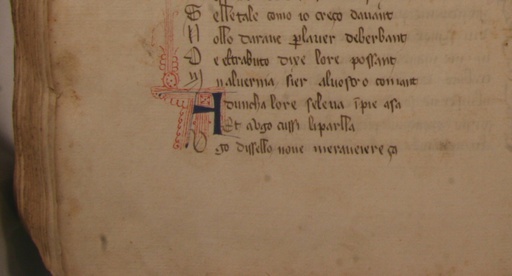 S elletale como io creço davant
N ollo darave p laver deberbant
D e estrabuto dire lore possant
N aluernia sier aluostro comant
A duncha lore seleva i pie asa
Et avgo cussi laparlla
V go dissello nove meraveiere ço